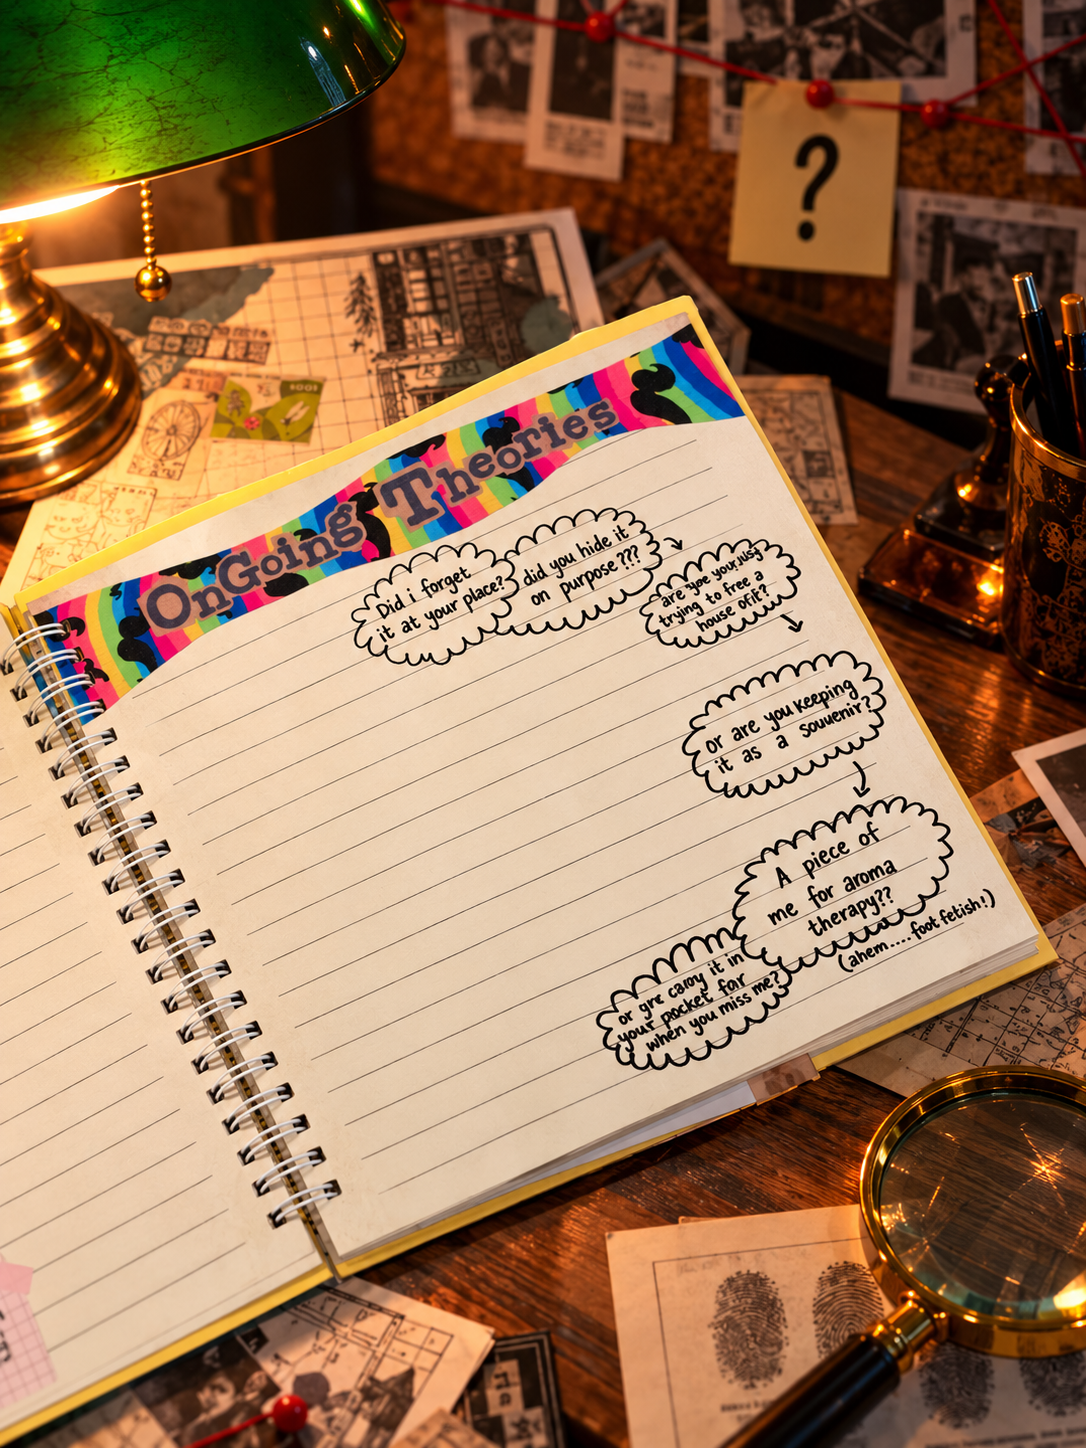 ?
OnGoing Theories
Did i forget
it at your place?
did you hide it
on purpose ???
trying to free a
house ofit?
or are you keeping
it as a souvenir?
A piece of
me for aroma
therapy??
(ahem....foot fetish!)
it in
your pocket for
when you miss me?